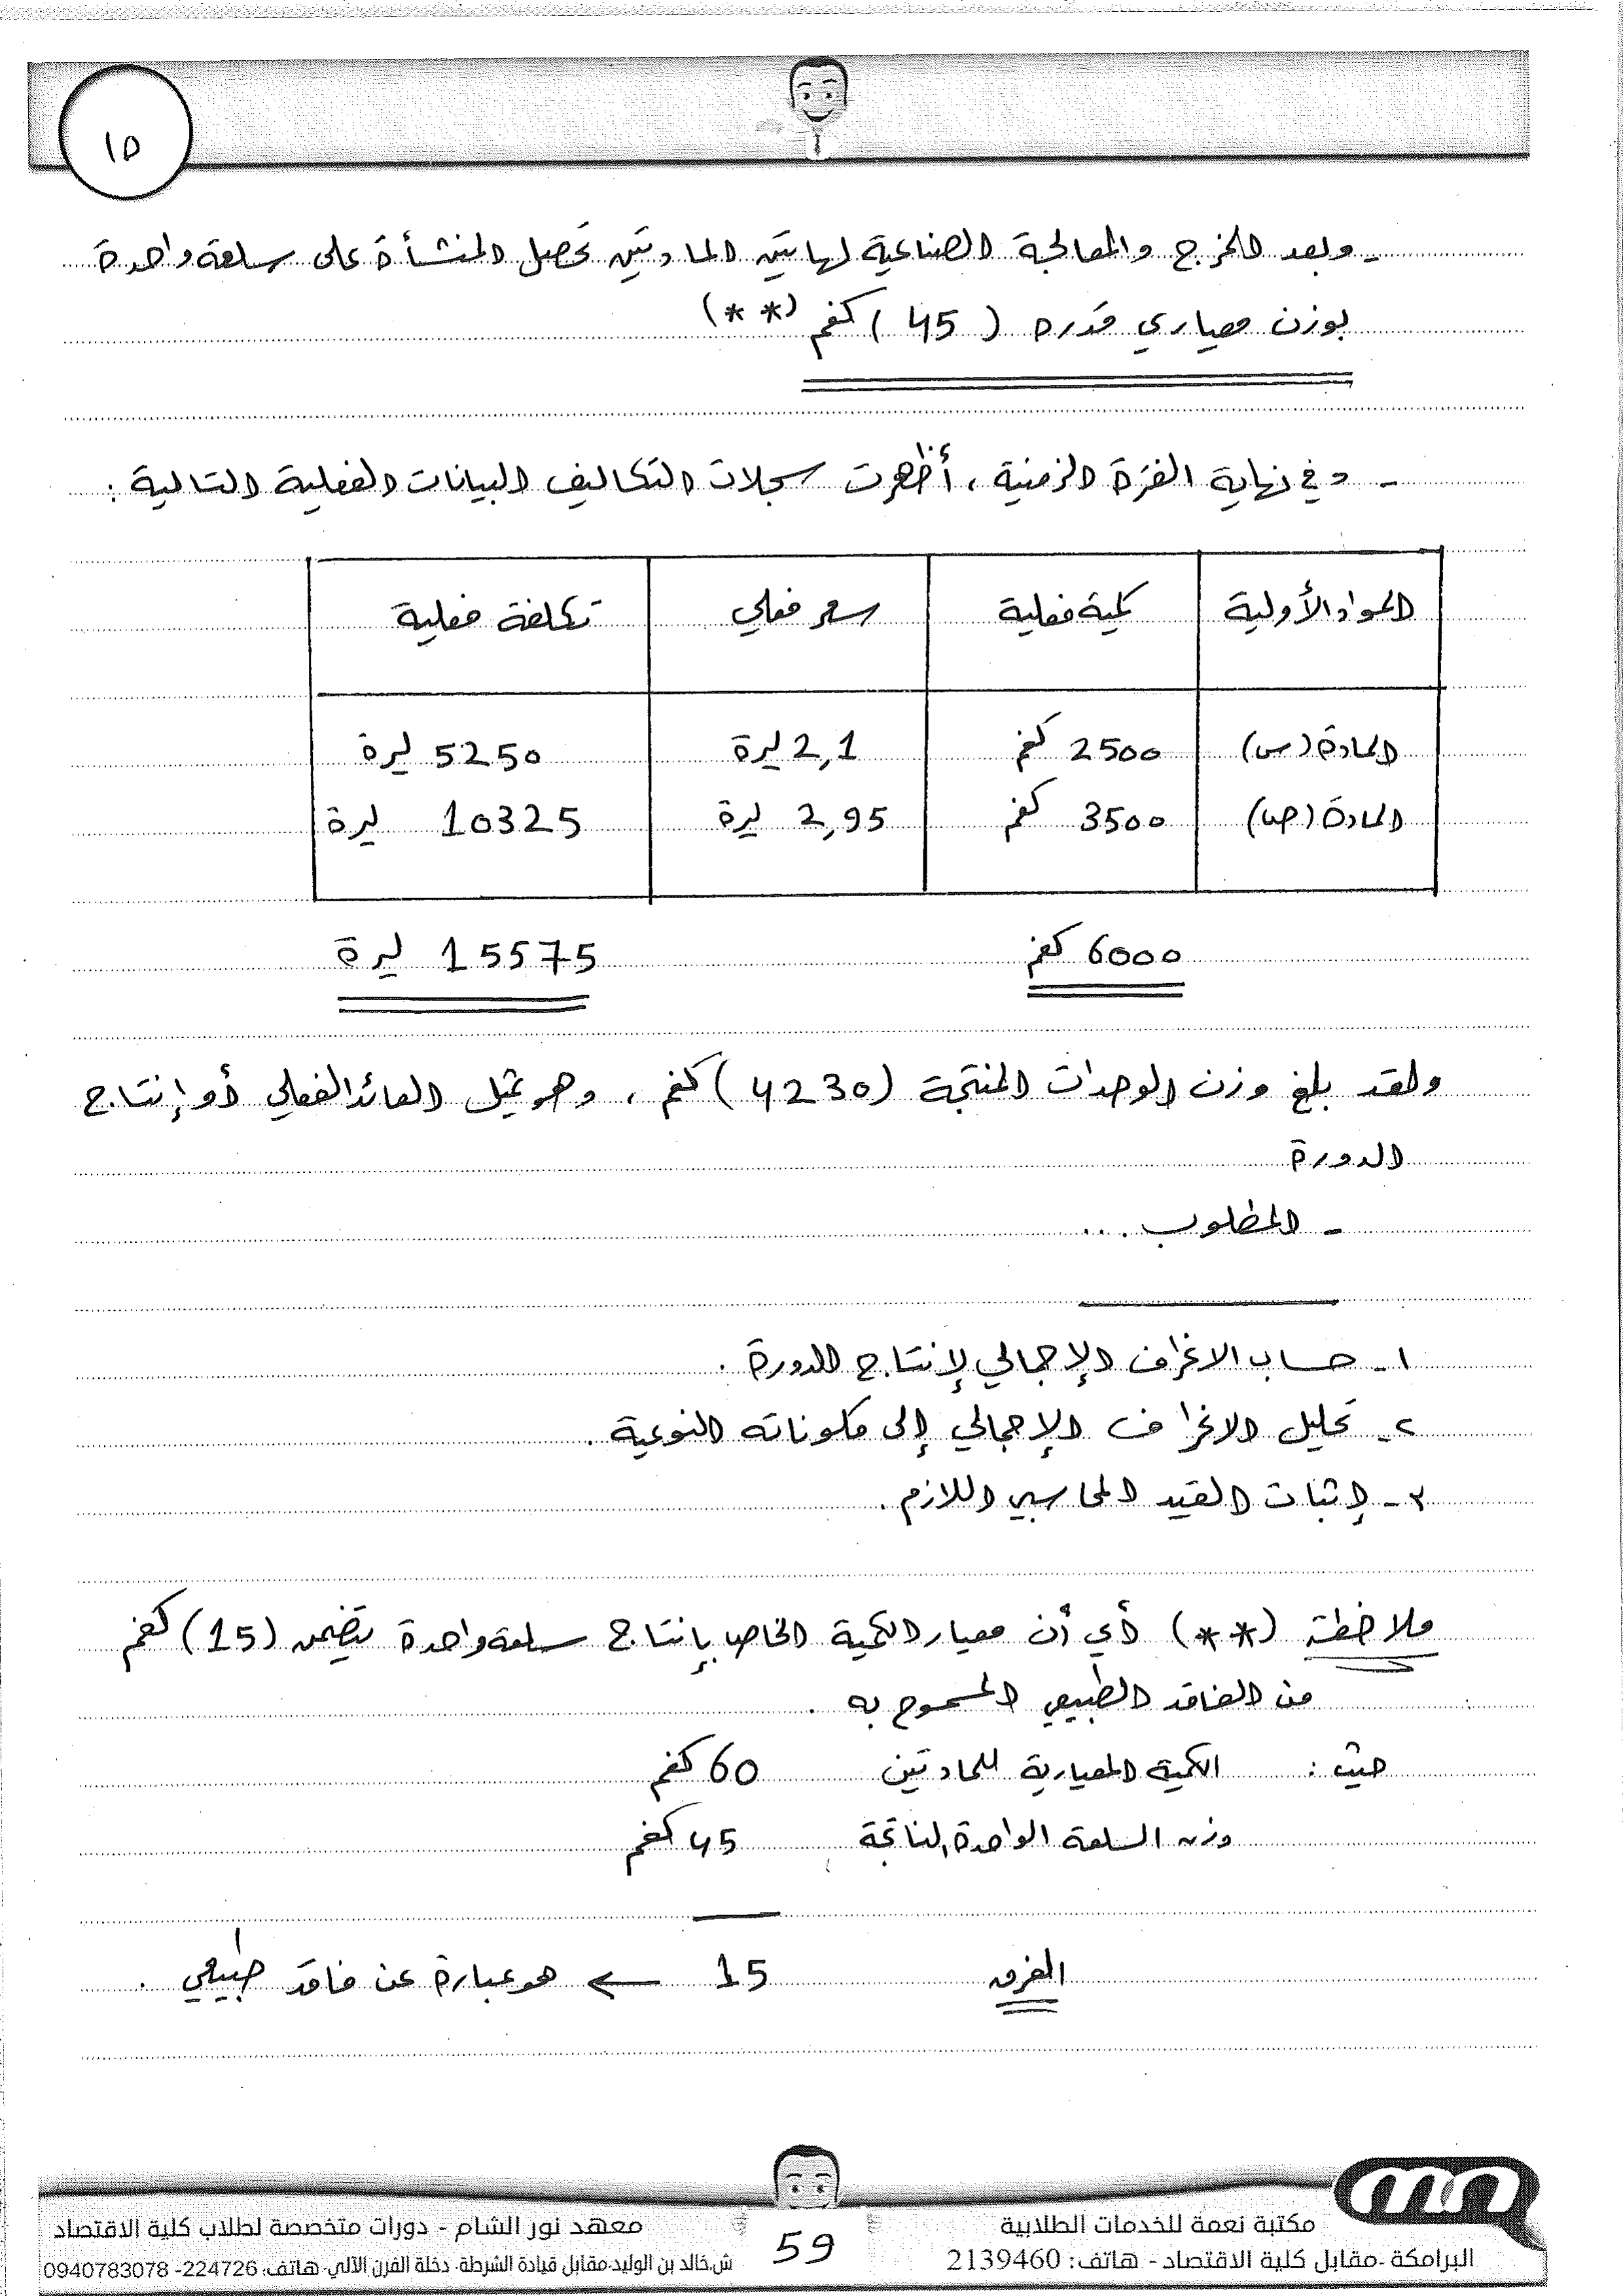 ١٥
- وبعد المزج والمعالجة الصناعية لهاتين المادتين تحصل المنشأة على سلعة واحدة
بوزن معياري قدره (45) كغم (**)
- وفي نهاية الفترة الزمنية، أظهرت سجلات التكاليف البيانات الفعلية التالية:
المواد الأولية كمية فعلية سعر فعلي تكلفة فعلية
المادة (س) 2500 كغم 2,1 ليرة 5250 ليرة
المادة (ص) 3500 كغم 2,95 ليرة 10325 ليرة
6000 كغم 15575 ليرة
ولقد بلغ وزن الوحدات المنتجة (4230) كغم، وهو يمثل العائد الفعلي أو إنتاج
الدورة
- المطلوب...
١- حساب الانحراف الإجمالي لإنتاج الدورة.
٢- تحليل الانحراف الإجمالي إلى مكوناته النوعية.
٣- إثبات القيد المحاسبي اللازم.
ملاحظة (**) أي أن معيار الكمية الخاص بإنتاج سلعة واحدة يتضمن (15) كغم
من الفاقد الطبيعي المسموح به.
حيث: الكمية المعيارية للمادتين 60 كغم
وزن السلعة الواحدة الناتجة 45 كغم
الفرق 15 ← هو عبارة عن فاقد طبيعي.
مكتبة نعمة للخدمات الطلابية
البرامكة -مقابل كلية الاقتصاد - هاتف: 2139460
59
معهد نور الشام - دورات متخصصة لطلاب كلية الاقتصاد
ش.خالد بن الوليد-مقابل قيادة الشرطة- دخلة الفرن الآلي- هاتف: 224726- 0940783078